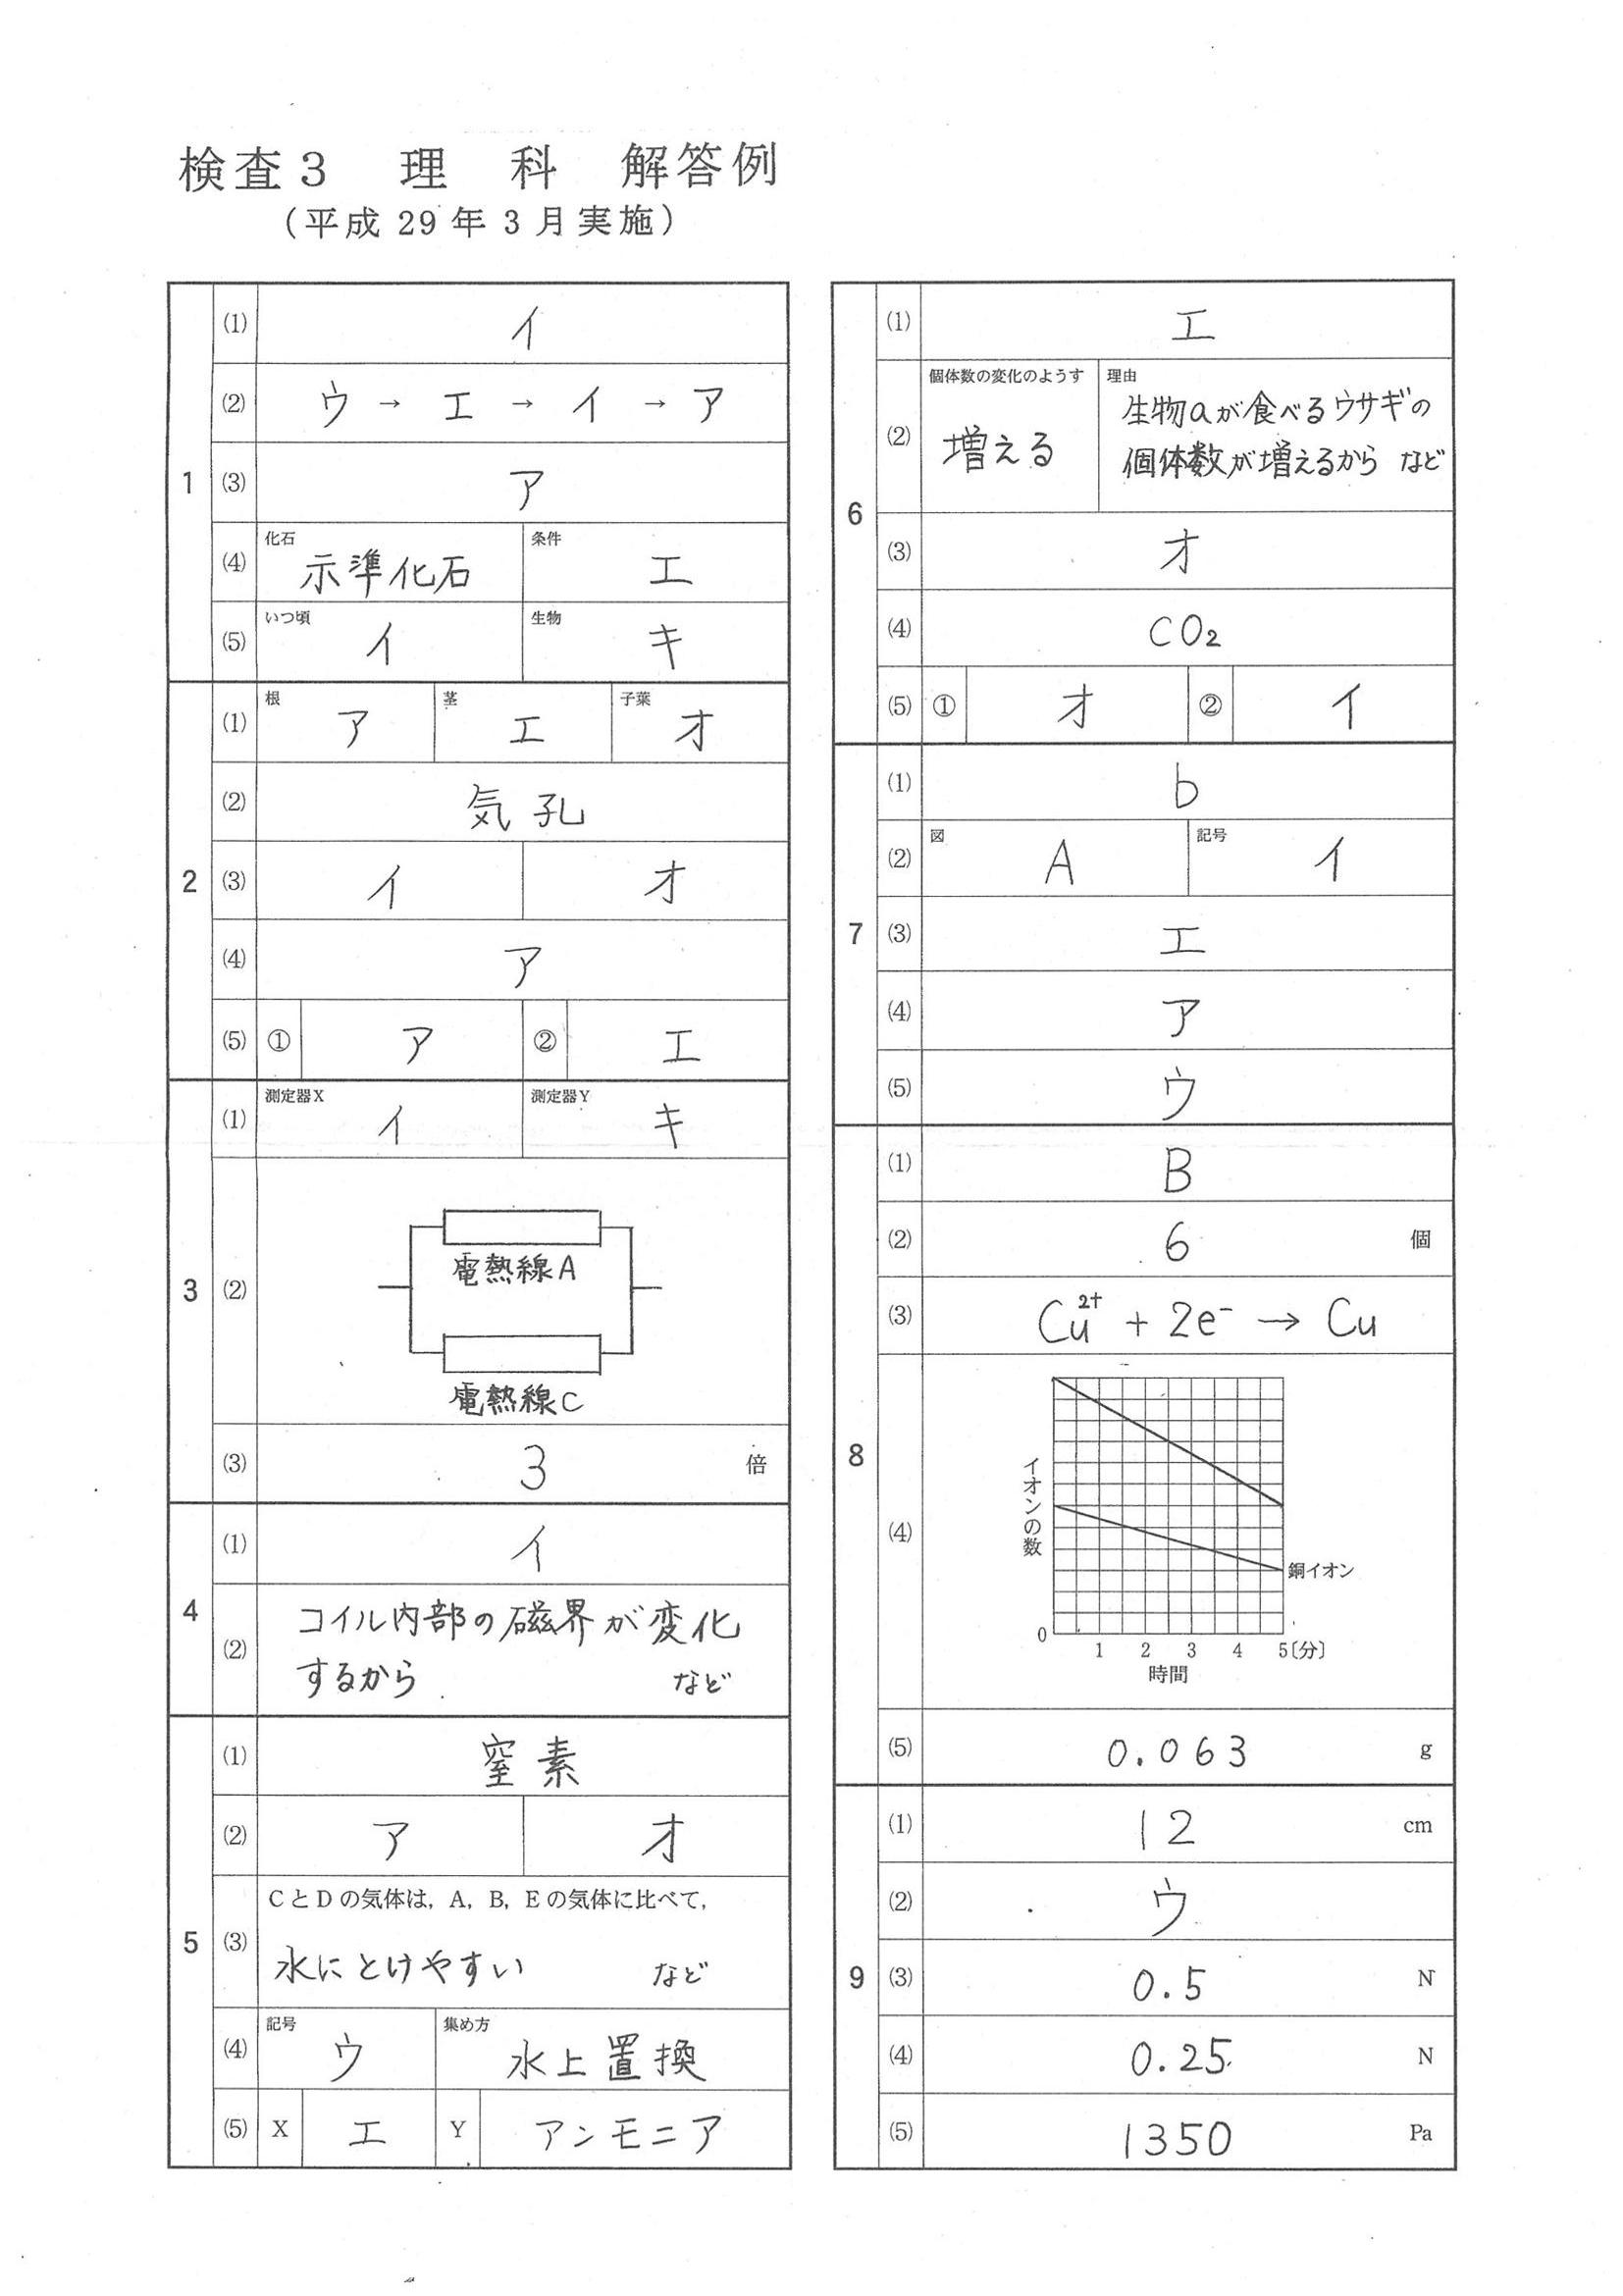 検査3 理 科 解答例
(平成 29 年 3 月実施)
1
(1) イ
(2) ウ → エ → イ → ア
(3) ア
(4) 化石 示準化石 条件 エ
(5) いつ頃 イ 生物 キ
2
(1) 根 ア 茎 エ 子葉 オ
(2) 気孔
(3) イ オ
(4) ア
(5) ① ア ② エ
3
(1) 測定器X イ 測定器Y キ
(2)
電熱線A
電熱線C
(3) 3 倍
4
(1) イ
(2) コイル内部の磁界が変化
するから など
5
(1) 窒素
(2) ア オ
(3) CとDの気体は，A，B，Eの気体に比べて，
水にとけやすい など
(4) 記号 ウ 集め方 水上置換
(5) X エ Y アンモニア
6
(1) エ
(2) 個体数の変化のようす 増える 理由
生物aが食べるウサギの
個体数が増えるから など
(3) オ
(4) CO₂
(5) ① オ ② イ
7
(1) b
(2) 図 A 記号 イ
(3) エ
(4) ア
(5) ウ
8
(1) B
(2) 6 個
(3) Cu²⁺ + 2e⁻ → Cu
(4)
イオンの数
銅イオン
0 1 2 3 4 5〔分〕
時間
(5) 0.063 g
9
(1) 12 cm
(2) ウ
(3) 0.5 N
(4) 0.25 N
(5) 1350 Pa